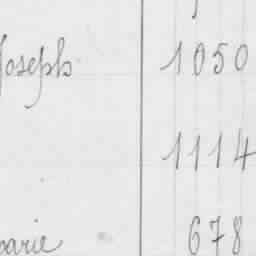 Joseph 1050
1114
678